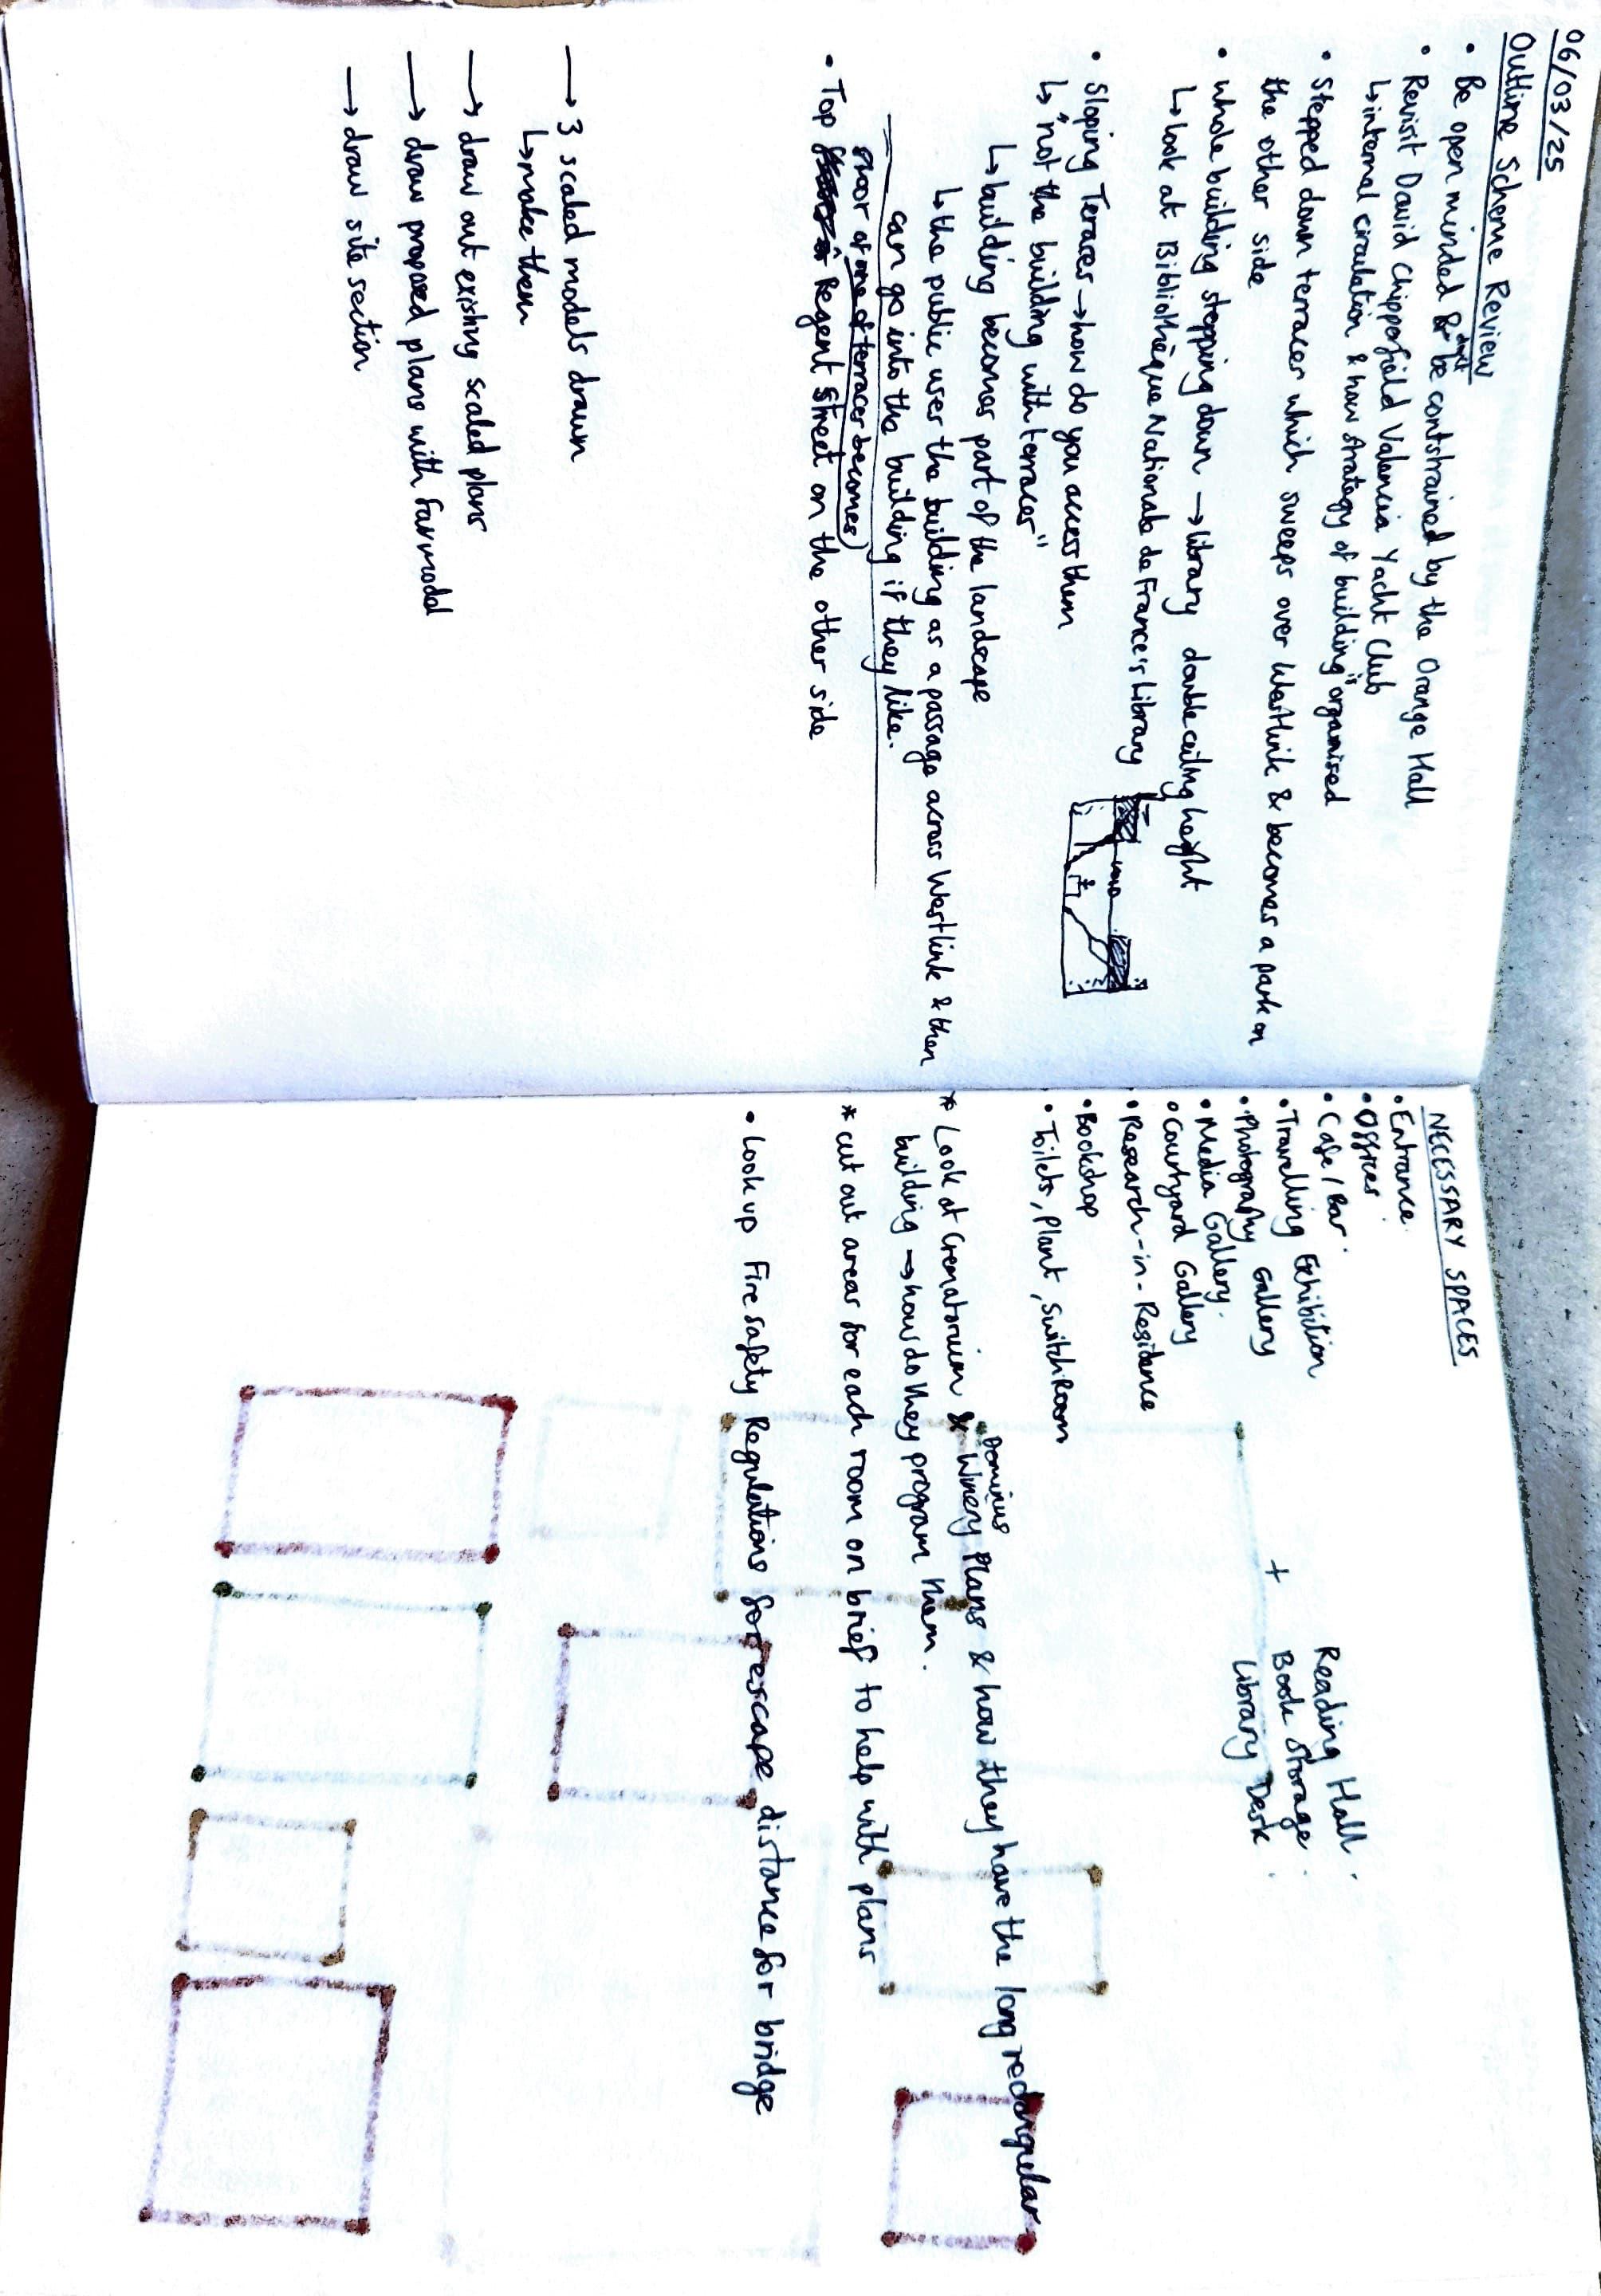 06/03/25
Outline Scheme Review
• Be open minded & don't be contstrained by the Orange Hall
• Revisit David Chipperfield Valencia Yacht Club
↳ internal circulation & how strategy of building is organised
• Stepped down terraces which sweeps over Westlink & becomes a park on
the other side
• whole building stepping down → library double ceiling height
↳ look at Bibliothèque Nationale de France's Library
void
• Sloping Terraces → how do you access them
↳ "not the building with terraces"
↳ building becomes part of the landscape
↳ the public user the building as a passage across Westlink & then
can go into the building if they like.
floor of one of terraces becomes
• Top Regent Street on the other side
→ 3 scaled models drawn
↳ make them
→ draw out existing scaled plans
→ draw proposed plans with fav model
→ draw site section
NECESSARY SPACES
• Entrance
• Offices
• Cafe / Bar
• Travelling Exhibition
• Photography Gallery
• Media Gallery
• Courtyard Gallery
• Research-in-Residence
• Bookshop
• Toilets, Plant, Switch Room
+
Reading Hall
Book Storage
Library Desk
Dominus
* Look at Crematorium & Winery Plans & how they have the long rectangular
building → how do they program them.
* cut out areas for each room on brief to help with plans
• Look up Fire safety Regulations for escape distance for bridge